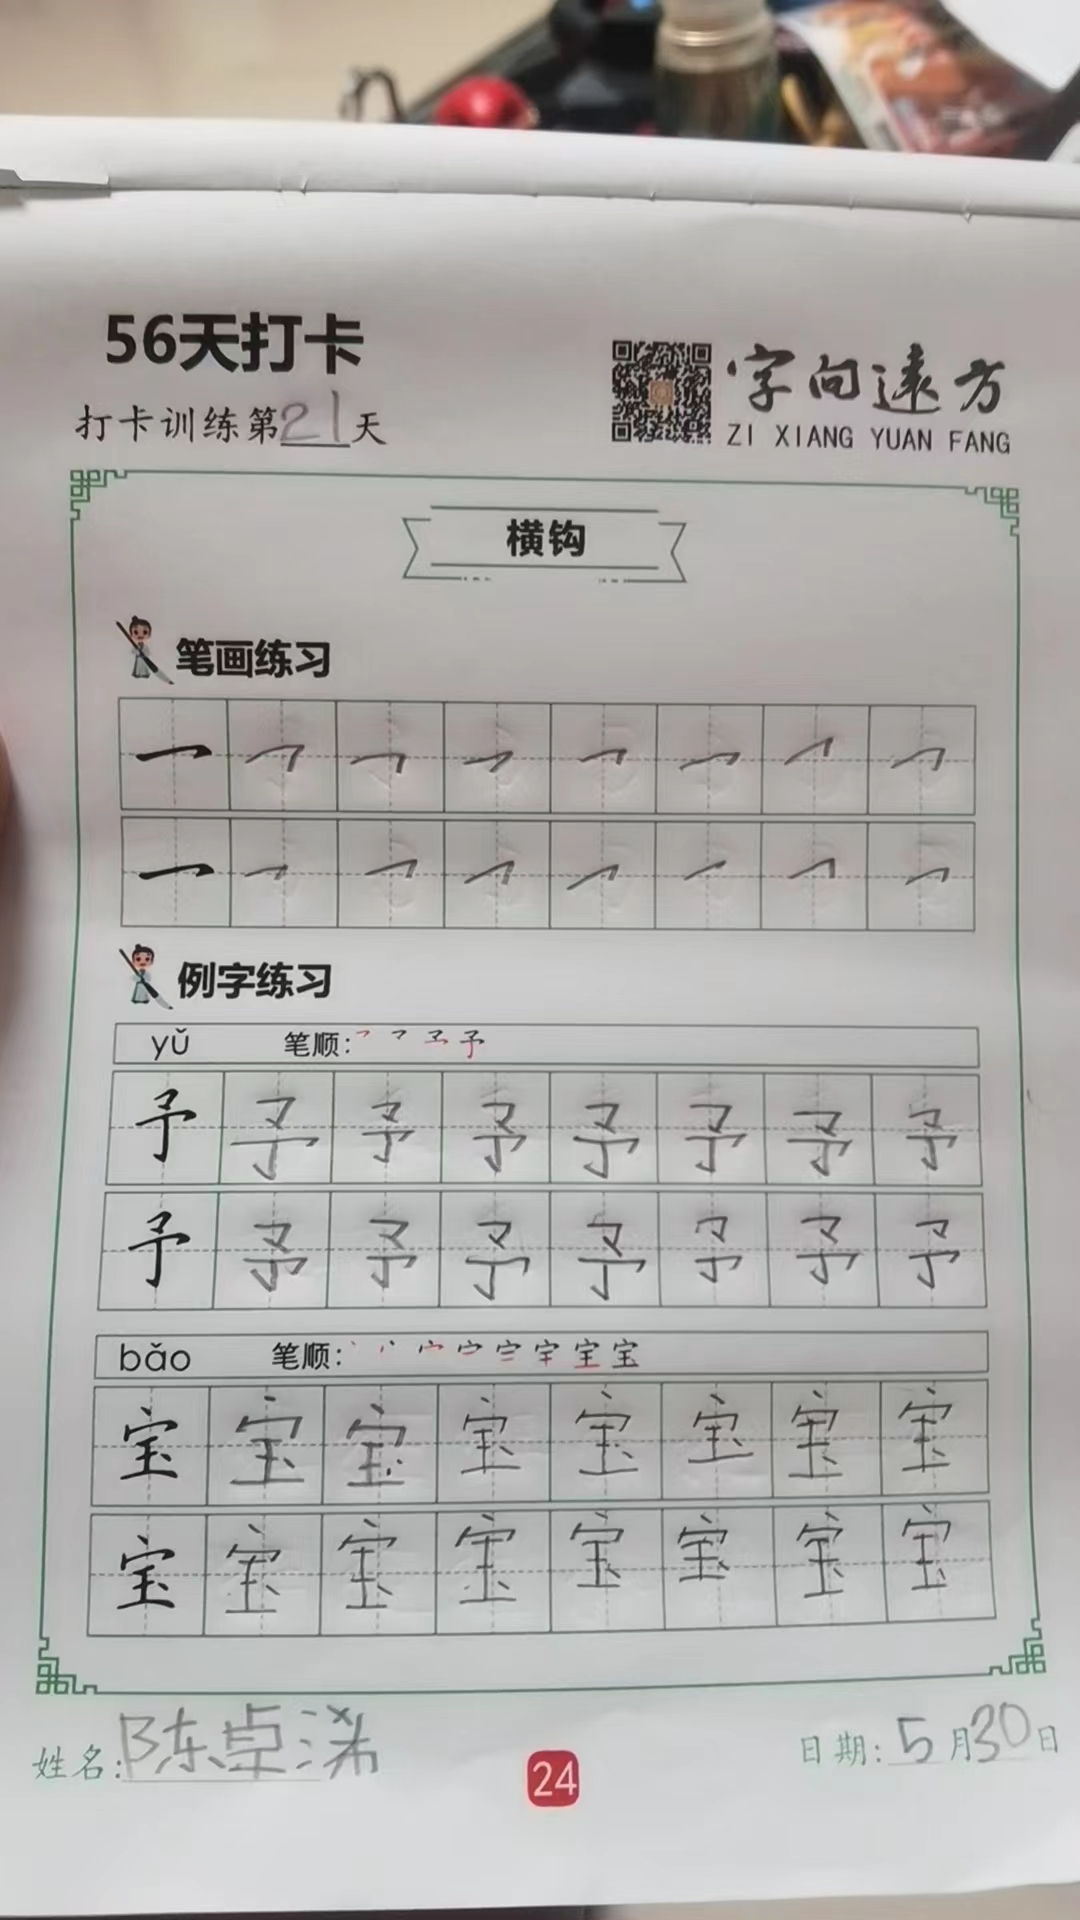 56天打卡
打卡训练第21天
字向远方
ZI XIANG YUAN FANG
横钩
笔画练习
例字练习
yǔ 笔顺:
予 予 予 予 予 予 予 予
予 予 予 予 予 予 予 予
bǎo 笔顺:
宝 宝 宝 宝 宝 宝 宝 宝
宝 宝 宝 宝 宝 宝 宝 宝
姓名:陈卓浠
24
日期:5月30日